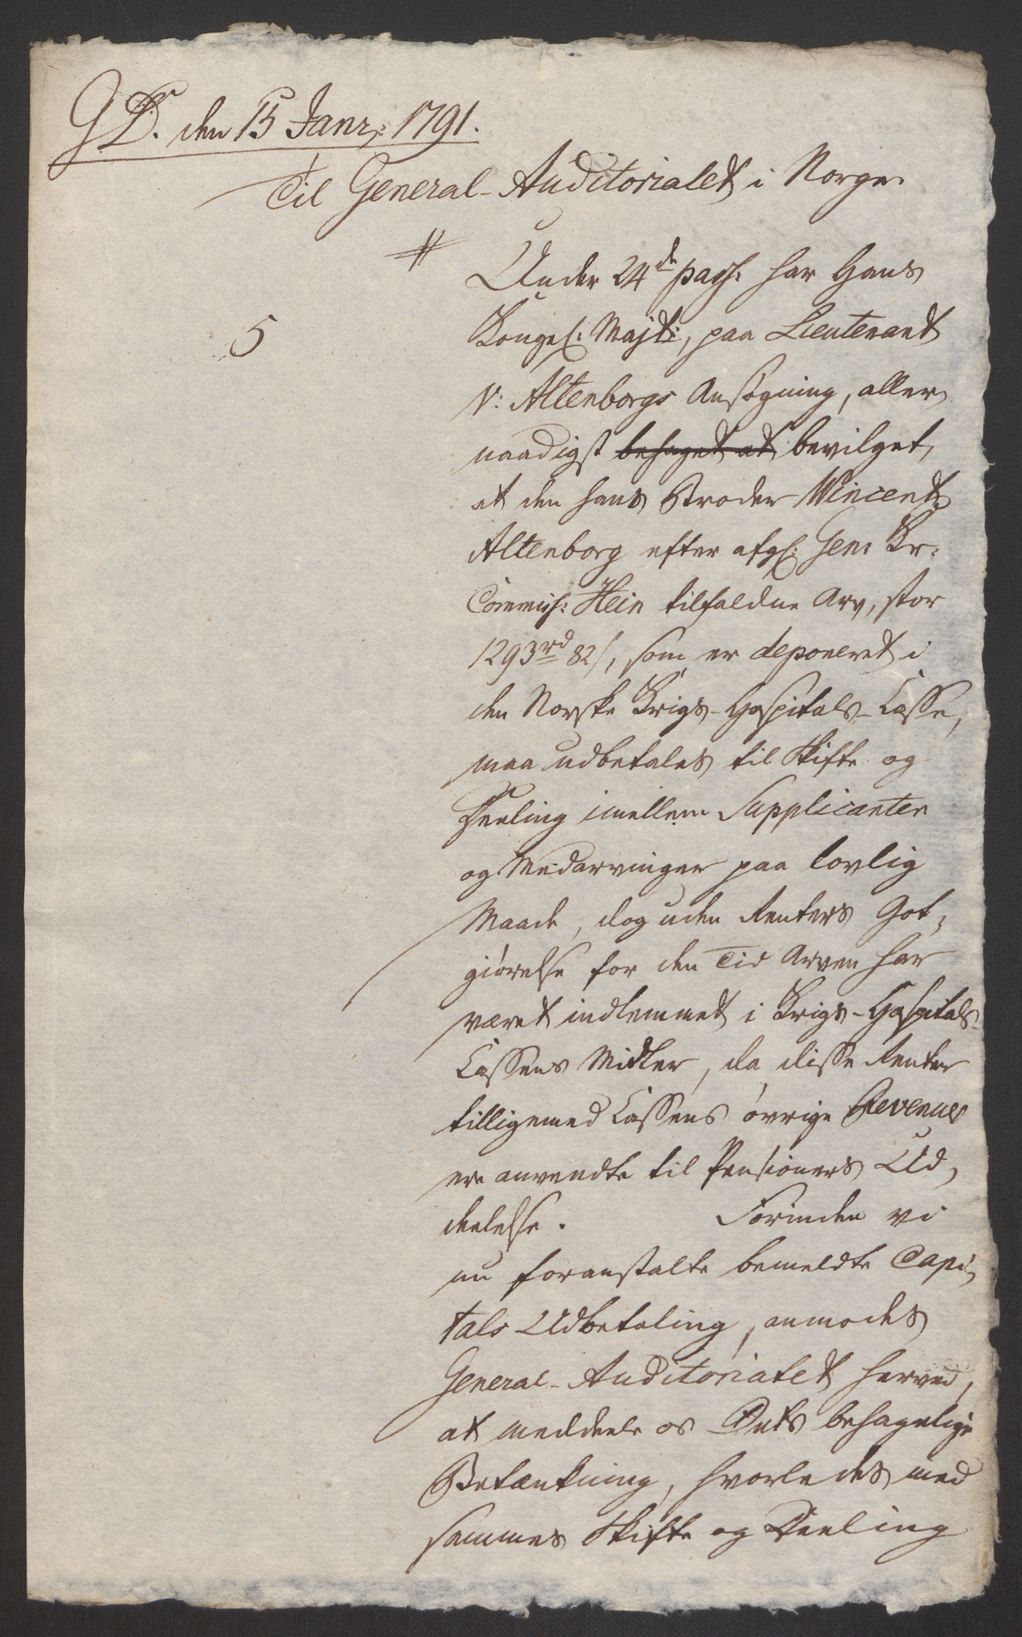 G D. den 15 Janr: 1791.
Til General-Auditorialet i Norge.
5
Under 24de pass: har Hans
Kongel: Majt:, paa Lieutenant
V: Altenborgs Ansøgning, aller-
naadigst behaget at bevilget,
at den hans Broder Wincent
Altenborg efter afgl: Gen: Kr:
Commiss: Hein tilfaldne Arv, stor
1293 rd 82 s, som er deponeret i
den Norske Krigs-Hospitals-Casse,
maa udbetales til Skifte og
Deeling imellem Supplicanten
og Medarvinger paa lovlig
Maade, dog uden Renters Got-
giørelse for den Tid Arven har
været indlemmet i Krigs-Hospitals-
Cassens Midler, da disse Renter
tilligemed Cassens øvrige Revenues
ere anvendte til Pensioners Ud-
deelelse. Forinden vi
nu foranstalte bemeldte Capi-
tals Udbetaling, anmodes
General-Auditoriatet herved,
at meddeele os Dets behagelige
Betænkning, hvorledes med
sammes Skifte og Deeling